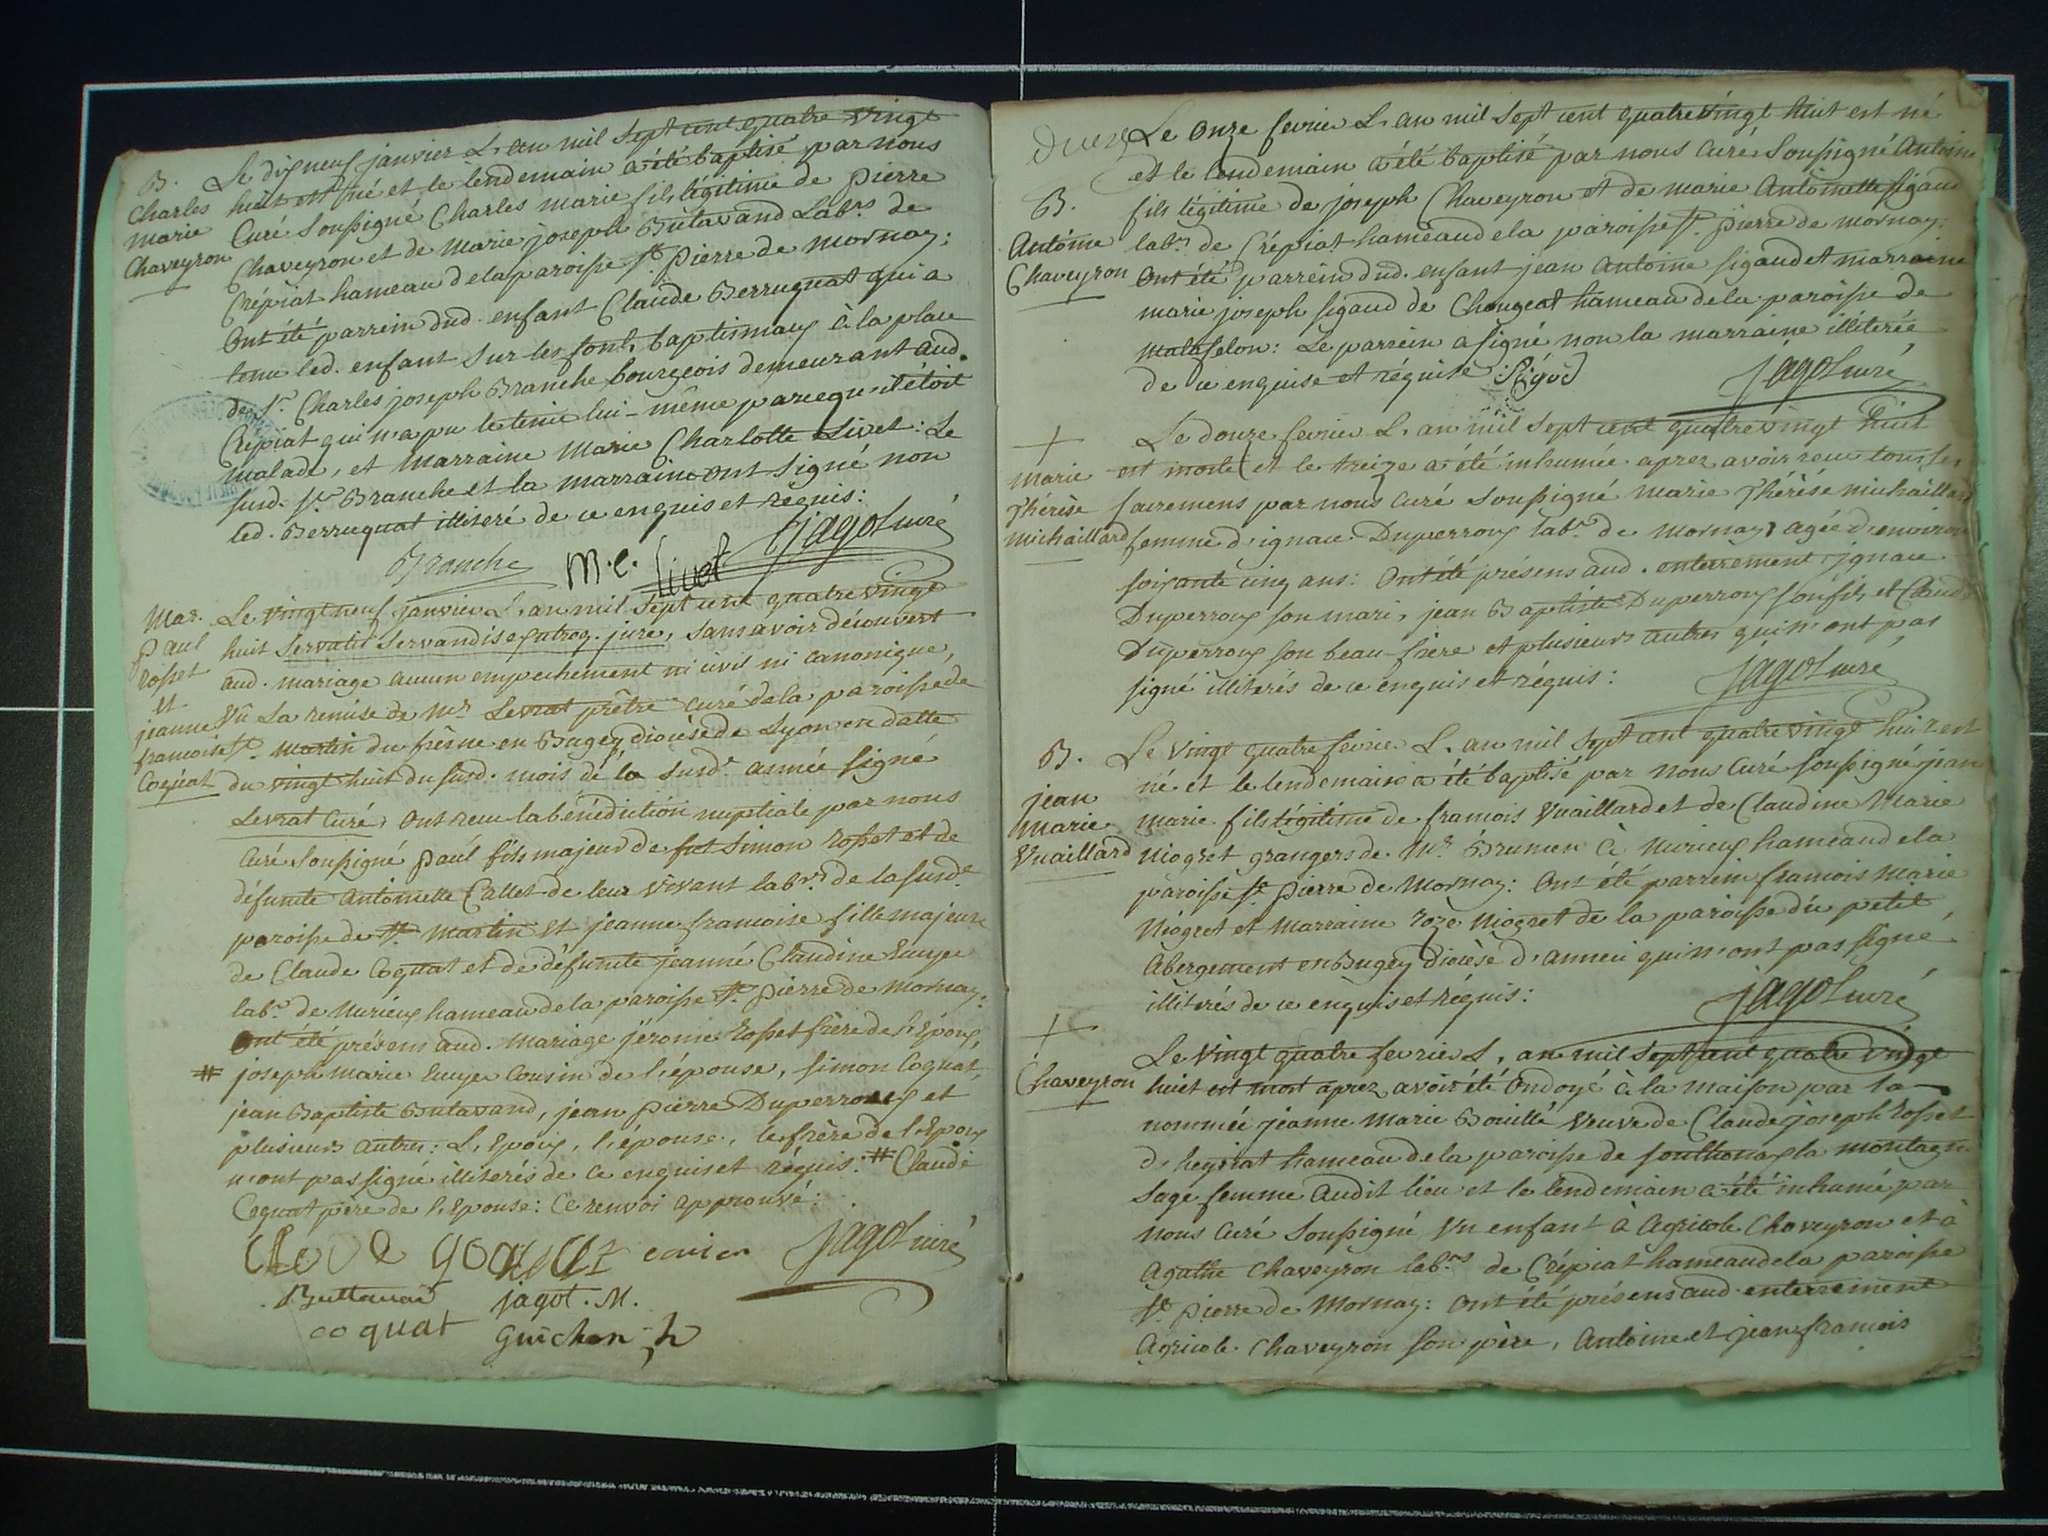 B.
Charles
marie
Chaveyron
Le dixneuf janvier L'an mil sept cent quatre vingt
huit est né et le lendemain a été baptisé par nous
Curé soussigné Charles marie fils légitime de pierre
Chaveyron et de Marie joseph Butavand Lab.rs de
Crépiat hameau de la paroisse St. Pierre de Mornay:
Ont été parrein dud. enfant Claude Berruquat qui a
tenu led. enfant sur les fonts baptismaux à la place
de Sr. Charles joseph Branche bourgeois demeurant aud.
Crépiat qui n'a pu le tenir lui-même parcequ'il étoit
malade, et Marraine Marie Charlotte Livet: Le
susd. Sr. Branche et la marraine ont signé non
led. Berruquat illiteré de ce enquis et requis:
Branche M. C. Livet jagot curé
Mar.
Paul
rosset
et
jeanne
francoise
Coquat
Le vingt neuf janvier L'an mil sept cent quatre vingt
huit servatis servandis ex utroq. jure, sans avoir découvert
aud. mariage aucun empechement ni civil ni canonique,
Vû La remise de Mr. Levrat prêtre curé de la paroisse de
St. Martin du frêne en Bugey diocèse de Lyon en datte
du vingt huit du susd. mois de la susd.e année signé
Levrat Curé, ont recu la bénédiction nuptiale par nous
Curé soussigné Paul fils majeur de fut Simon rosset et de
défunte Antoinette Callet de leur vivant lab.rs de la susd.e
paroisse de St. Martin et jeanne francoise fille majeure
de Claude Coquat et de défunte jeanne Claudine Euvyer
lab.rs de Nurieux hameau de la paroisse St. Pierre de Mornay:
Ont été présens aud. Mariage jérome rosset frère de l'Epoux,
# joseph marie Euvyer Cousin de l'épouse, Simon Coquat,
jean Baptiste Butavand, jean pierre Duperroux et
plusieurs autres: L'Epoux, l'épouse, le frère de l'Epoux
n'ont pas signé illiterés de ce enquis et réquis: # Claude
Coquat père de l'Epouse: Ce renvoi approuvé:
jagot curé
Buttavand jagot. M.
coquat Guichon
Le onze fevrier L'an mil sept cent quatre vingt huit est né
et le lendemain a été baptisé par nous Curé soussigné Antoine
B.
Antoine
Chaveyron
fils légitime de joseph Chaveyron et de marie Antoinette sigaud
lab.rs de Crépiat hameau de la paroisse St. Pierre de Mornay:
Ont été parrein dud. enfant jean Antoine sigaud et marraine
marie joseph sigaud de Chougeat hameau de la paroisse de
Matafelon: Le parrein a signé non la marraine illiterée
de ce enquise et réquise
jagot curé
+
Marie
Thérèse
Michaillard
Le douze fevrier L'an mil sept cent quatre vingt huit
est morte et le treize a été inhumée aprez avoir recu tous ses
sacremens par nous curé soussigné marie Thérèse michaillard
femme d'ignace Duperroux lab.r de Mornay, agée d'environ
soixante cinq ans: Ont été présens aud. enterrement ignace
Duperroux son mari, jean Baptiste Duperroux son fils et Claude
Duperroux son beau-frère et plusieurs autres qui n'ont pas
signé illiterés de ce enquis et réquis:
jagot curé
B.
jean
Marie
Vuaillard
Le vingt quatre fevrier L'an mil sept cent quatre vingt huit est
né et le lendemain a été baptisé par nous Curé soussigné jean
marie fils légitime de francois Vuaillard et de Claudine Marie
Niogret grangers de Mr. Brunier à Nurieux hameau de la
paroisse St. Pierre de Mornay: Ont été parrein francois Marie
Niogret et Marraine roze Niogret de la paroisse du petit
Abergement en Bugey diocèse d'annecì qui n'ont pas signé
illiterés de ce enquis et réquis:
jagot curé
+
Chaveyron
Le vingt quatre fevrier L'an mil sept cent quatre vingt
huit est mort aprez avoir été ondoyé à la maison par la
nommée jeanne Marie Bouillé veuve de Claude joseph rosset
d'heyriat hameau de la paroisse de sonthonax la montagne
sage femme audit lieu et le lendemain a été inhumé par
nous Curé soussigné un enfant à Agricole Chaveyron et à
Agathe Chaveyron lab.rs de Crépiat hameau de la paroisse
St. Pierre de Mornay: Ont été présens aud. enterrement
Agricole Chaveyron son père, Antoine et jean francois